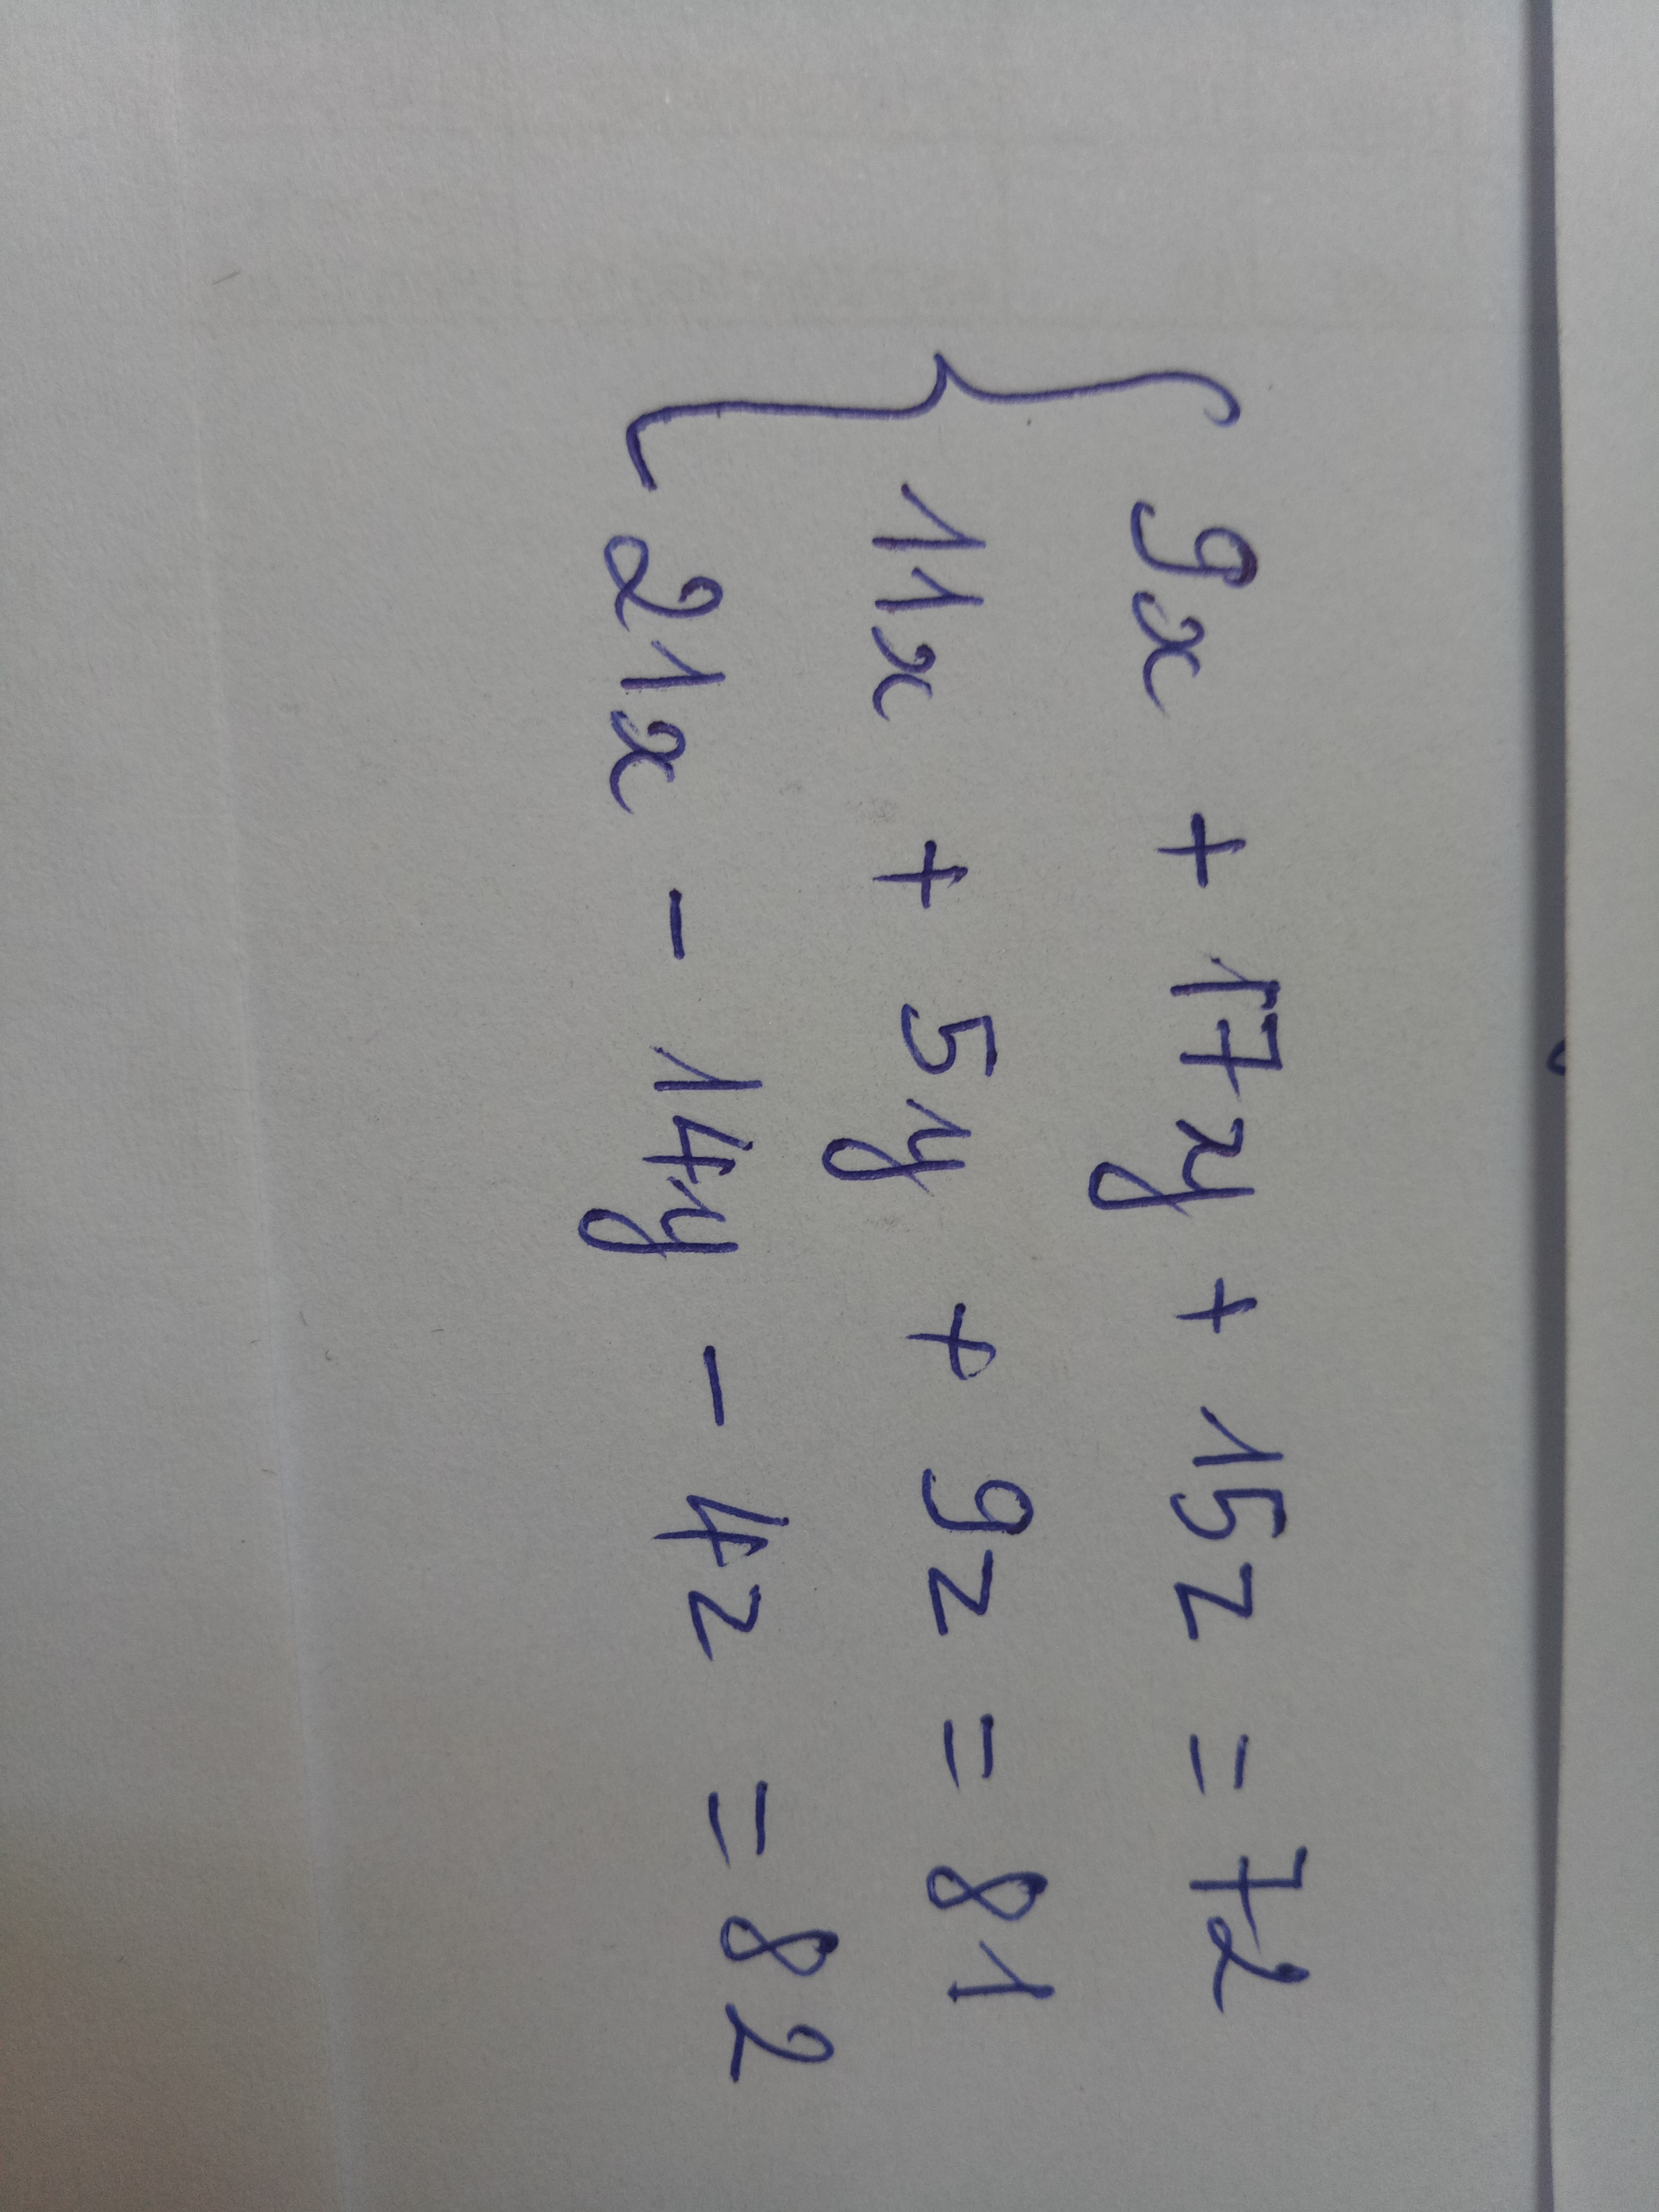 9x + 17y + 15z = 72
11x + 5y + 9z = 81
21x - 14y - 4z = 82